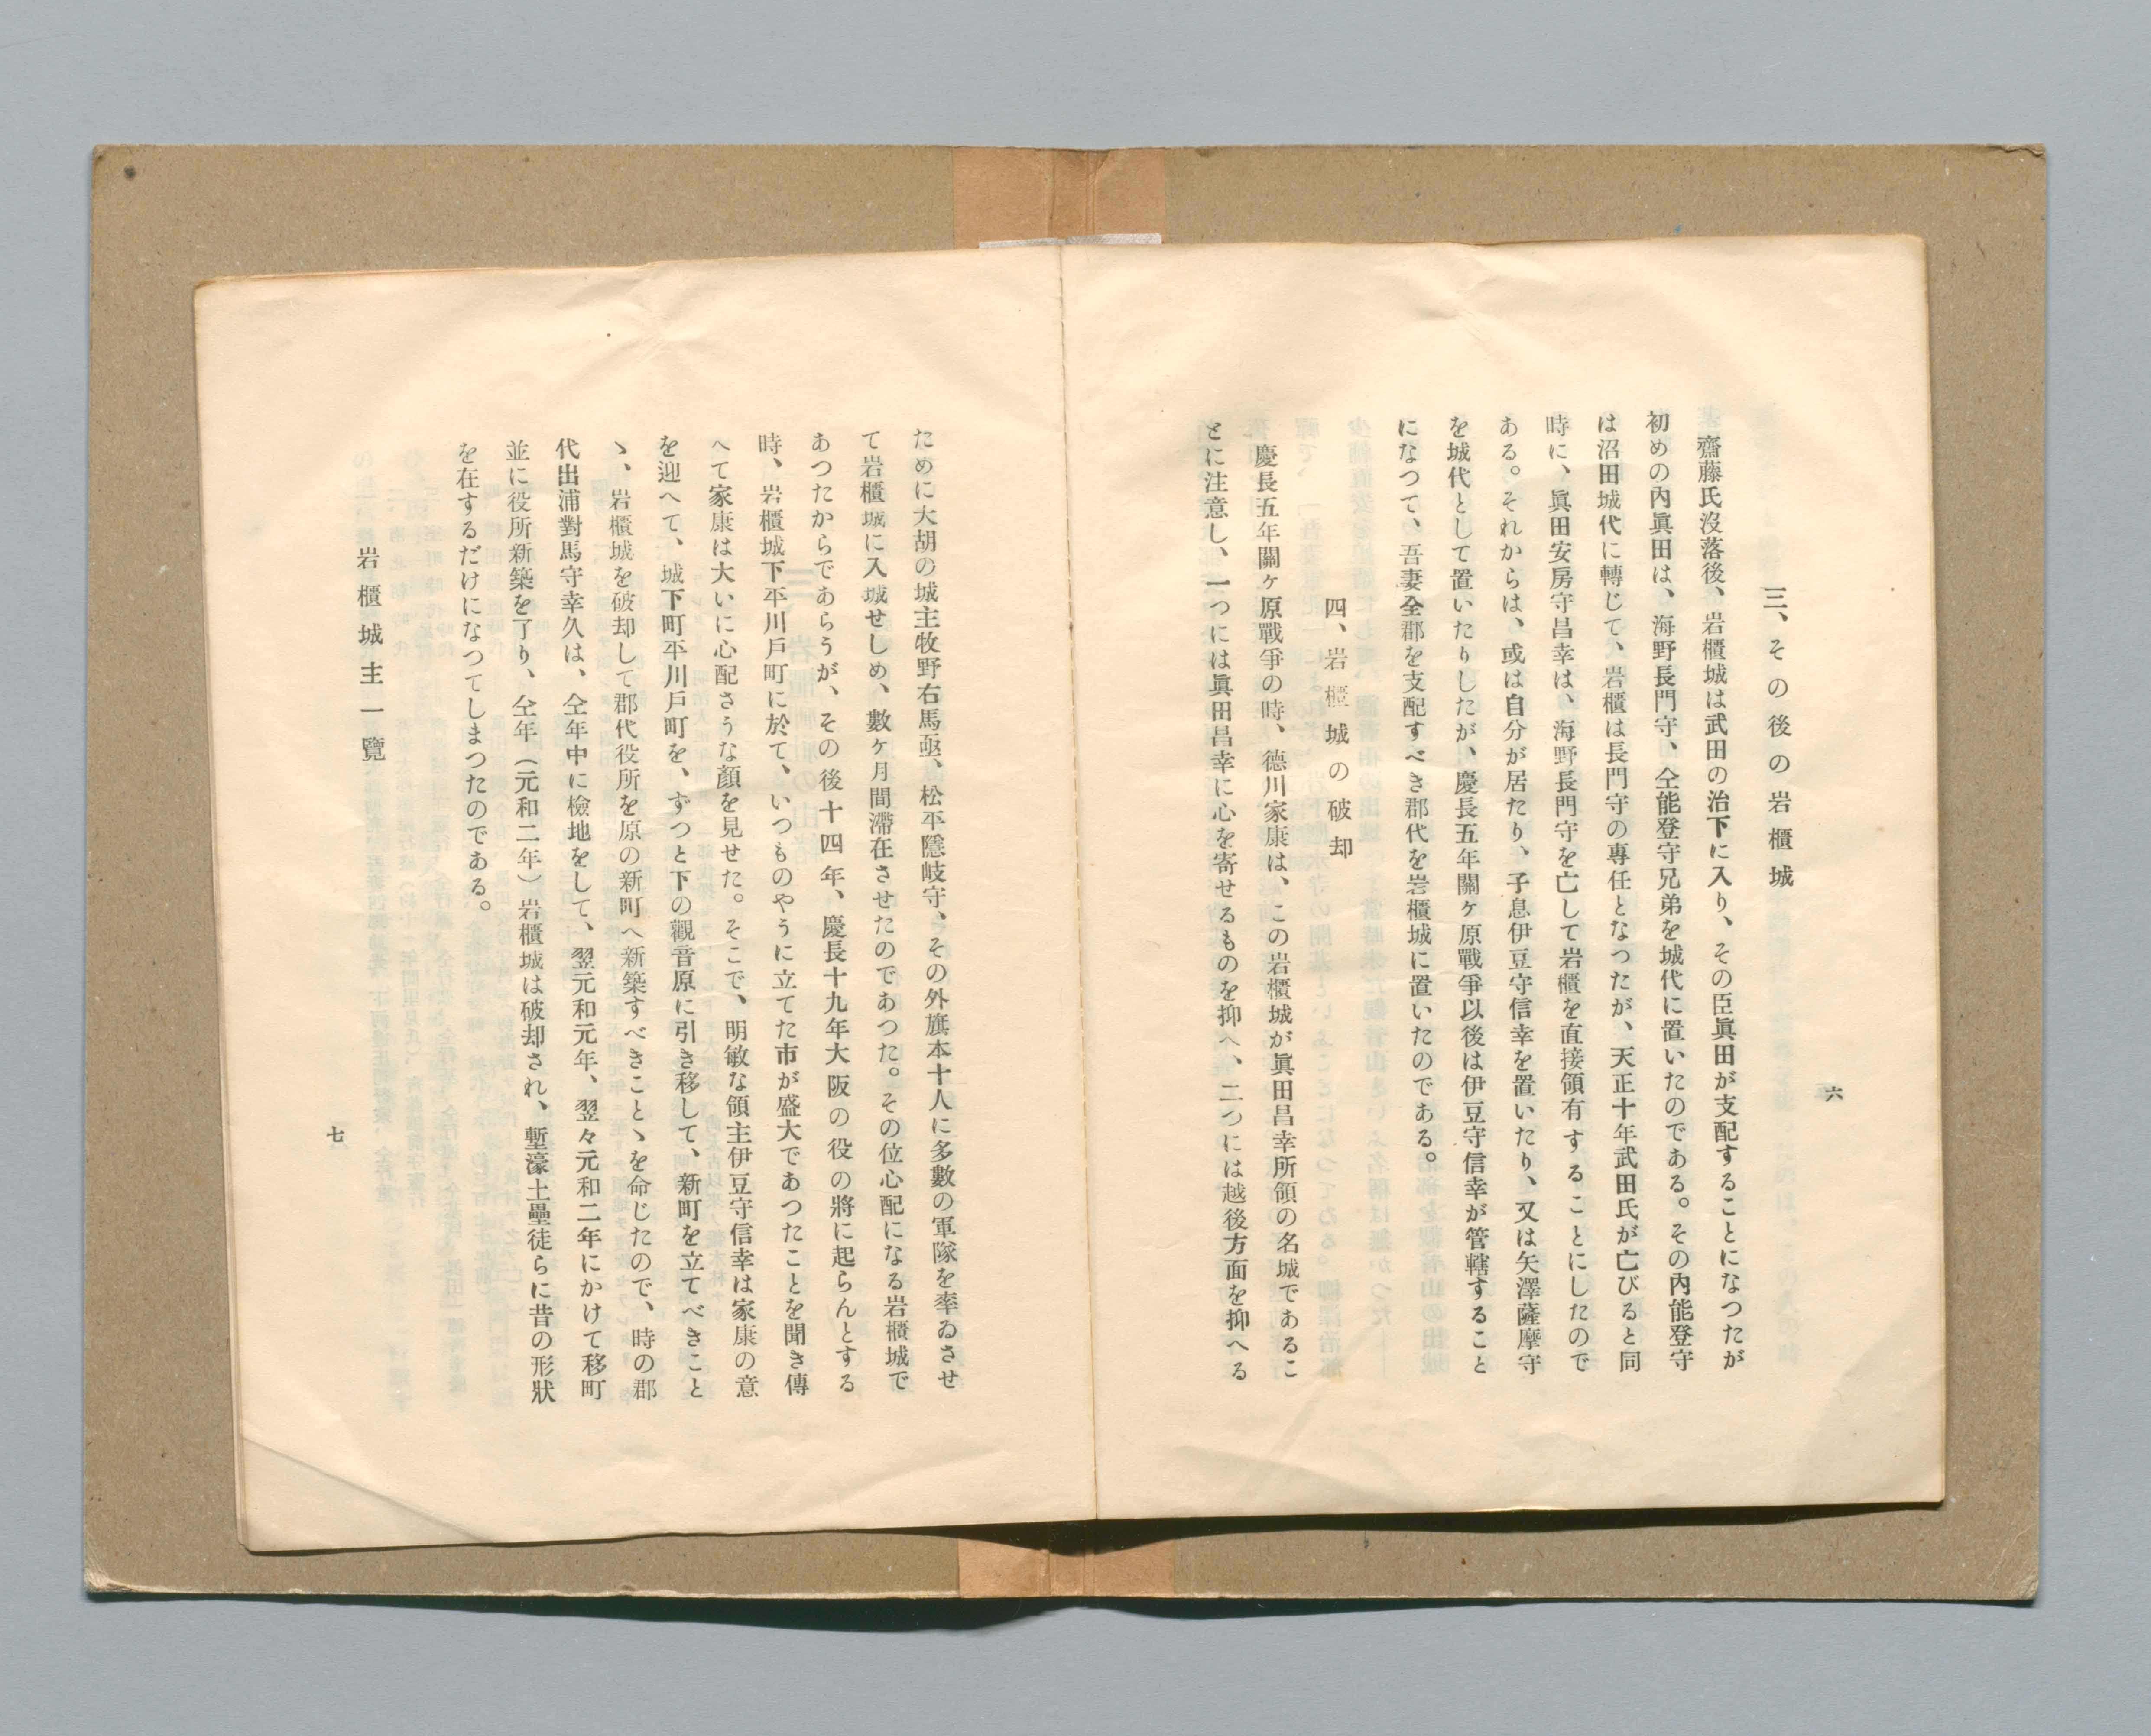 六
三、その後の岩櫃城
齋藤氏沒落後、岩櫃城は武田の治下に入り、その臣眞田が支配することになつたが
初めの內眞田は、海野長門守、仝能登守兄弟を城代に置いたのである。その內能登守
は沼田城代に轉じて、岩櫃は長門守の專任となつたが、天正十年武田氏が亡びると同
時に、眞田安房守昌幸は、海野長門守を亡して岩櫃を直接領有することにしたので
ある。それからは、或は自分が居たり、子息伊豆守信幸を置いたり、又は矢澤薩摩守
を城代として置いたりしたが、慶長五年關ヶ原戰爭以後は伊豆守信幸が管轄すること
になつて、吾妻全郡を支配すべき郡代を岩櫃城に置いたのである。
四、岩櫃城の破却
慶長五年關ヶ原戰爭の時、德川家康は、この岩櫃城が眞田昌幸所領の名城であるこ
とに注意し、一つには眞田昌幸に心を寄せるものを抑へ、二つには越後方面を抑へる
ために大胡の城主牧野右馬亟、松平隱岐守、その外旗本十人に多數の軍隊を率ゐさせ
て岩櫃城に入城せしめ、數ヶ月間滯在させたのであつた。その位心配になる岩櫃城で
あつたからであらうが、その後十四年、慶長十九年大阪の役の將に起らんとする
時、岩櫃城下平川戸町に於て、いつものやうに立てた市が盛大であつたことを聞き傳
へて家康は大いに心配さうな顏を見せた。そこで、明敏な領主伊豆守信幸は家康の意
を迎へて、城下町平川戸町を、ずつと下の觀音原に引き移して、新町を立てべきこと
ゝ、岩櫃城を破却して郡代役所を原の新町へ新築すべきことゝを命じたので、時の郡
代出浦對馬守幸久は、仝年中に檢地をして、翌元和元年、翌々元和二年にかけて移町
並に役所新築を了り、仝年（元和二年）岩櫃城は破却され、塹濠土壘徒らに昔の形狀
を在するだけになつてしまつたのである。
岩櫃城主一覽
七